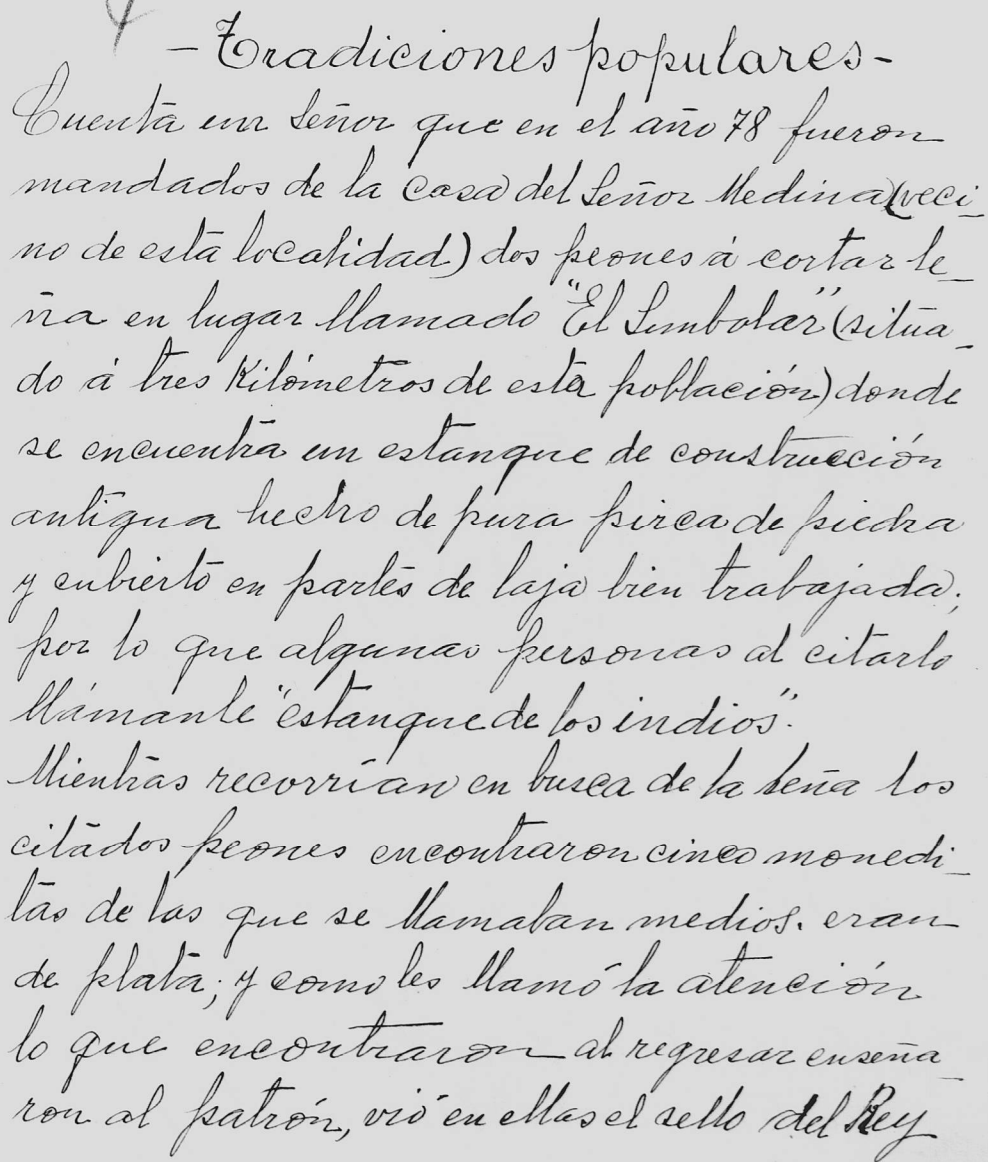 4
- Tradiciones populares -
Cuenta un Señor que en el año 78 fueron
mandados de la casa del Señor Medina (veci_
no de esta localidad) dos peones á cortar le_
ña en lugar llamado "El Simbolar" (situa_
do á tres Kilómetros de esta población) donde
se encuentra un estanque de construcción
antigua hecho de pura pirca de piedra
y cubierto en partes de laja bien trabajada;
por lo que algunas personas al citarlo
llámanle "estanque de los indios".
Mientras recorrían en busca de la leña los
citados peones encontraron cinco monedi_
tas de las que se llamaban medios. eran
de plata; y como les llamó la atención
lo que encontraron al regresar enseña_
ron al patrón, vió en ellas el sello del Rey